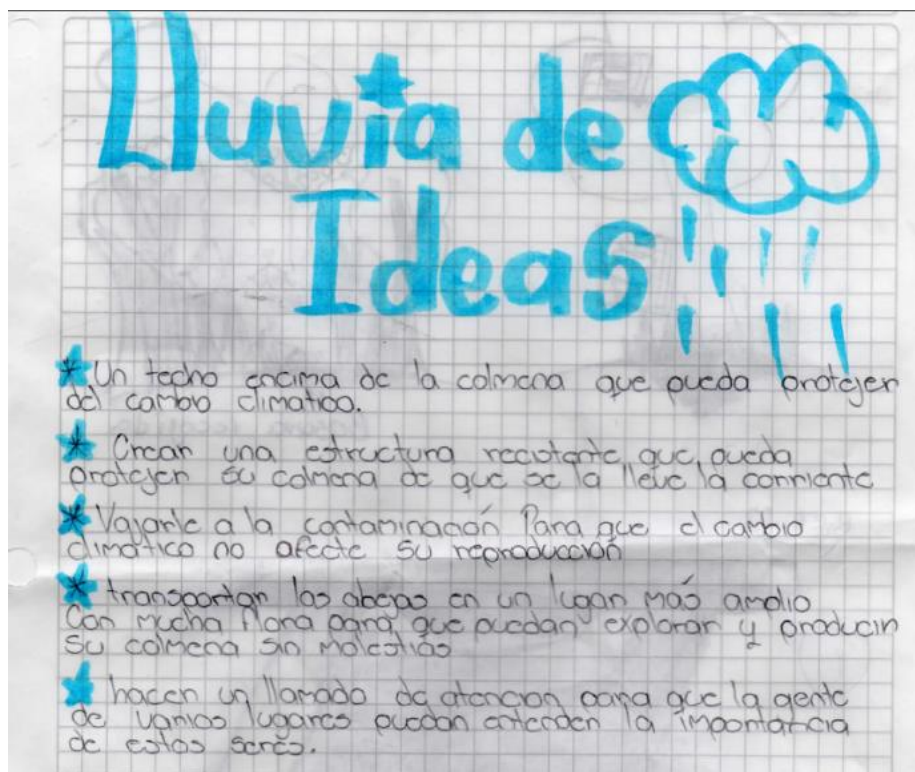 Lluvia de
Ideas
Un techo encima de la colmena que pueda protejer
del cambio climatico.
Crear una estructura recistente que pueda
protejer su colmena de que se la lleve la corriente
Vajarle a la contaminación Para que el cambio
climático no afecte su reproducción
transportar las abejas en un lugar más amplio
Con mucha flora para que puedan explorar y producir
Su colmena sin molestias
hacer un llamado de atencion para que la gente
de varios lugares puedan entender la importancia
de estos seres.